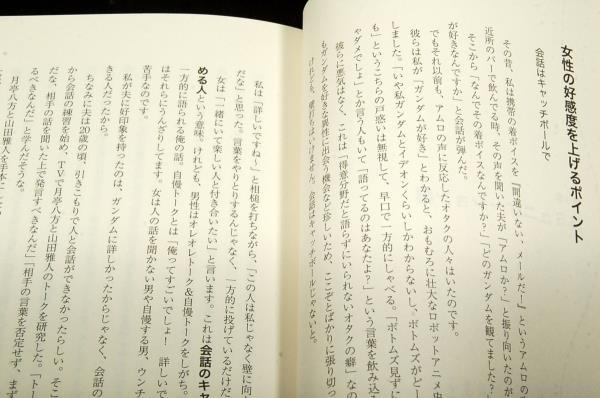 女性の好感度を上げるポイント
会話はキャッチボールで
その昔、私は携帯の着ボイスを「間違いない、メールだ！」というアムロの声
近所のバーで飲んでる時、その声を聞いた夫が「アムロか？」と振り向いたのが
そこから「なんでその着ボイスなんですか？」「どのガンダムを観てました？」
が好きなんですか」と会話が弾んだ。
でもそれ以前も、アムロの声に反応したオタクの人々はいたのです。
彼らは私が「ガンダムが好き」とわかると、おもむろに壮大なロボットアニメ史
しました。「いや私ガンダムとイデオンくらいしかわからないし、ボトムズがどー
も」というこちらの戸惑いは無視して、早口で一方的にしゃべる。「ボトムズ見ずに
ゃダメでしょ」とか言う人もいて「語ってるのはあなたよ？」という言葉を飲み込
彼らに悪気はなく、これは「得意分野だと語らずにいられないオタクの癖」なの
もガンダムを好きな異性に出会う機会など珍しいため、ここぞとばかりに張り切っ
けれども、壁打ちはいけません。会話はキャッチボールじゃないと。
私は「詳しいですね！」と相槌を打ちながら、「この人は私じゃなく壁に向
だな」と思った。言葉をやりとりするんじゃなく、一方的に投げているだけだ
女は「一緒にいて楽しい人と付き合いたい」と言います。これは会話のキャ
める人という意味。けれども、男性はオレオレトーク＆自慢トークをしがち。
一方的に語られる俺の話、自慢トークとは「俺ってすごいでしょ！　詳しいで
はそれらにうんざりしてます。女は人の話を聞かない男や自慢する男、ウンチ
苦手なのです。
私が夫に好印象を持ったのは、ガンダムに詳しかったからじゃなく、会話の
きる人だったから。
ちなみに夫は20歳の頃、引きこもりで人と会話ができなかったらしい。そこ
から会話の練習を始め、TVで月亭八方と山田雅人のトークを研究した。「トー
だな、相手の話を聞いた上で発言すべきなんだ」「相手の言葉を否定せず、まず
るべきなんだ」と学んだそうな。
月亭八方と山田雅人を手本に